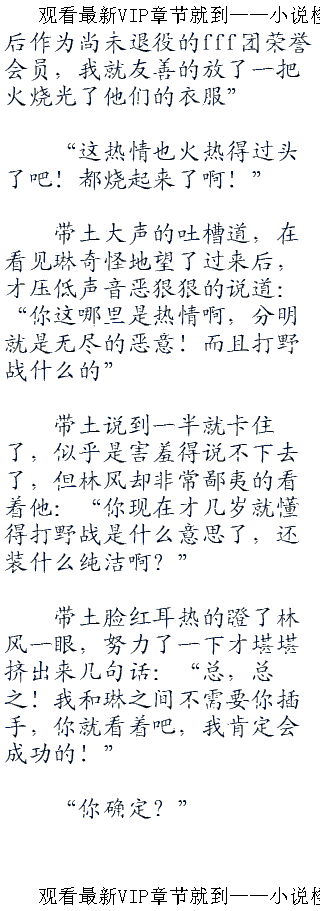 观看最新VIP章节就到——小说检
后作为尚未退役的fff团荣誉
会员，我就友善的放了一把
火烧光了他们的衣服”
“这热情也火热得过头
了吧！都烧起来了啊！”
带土大声的吐槽道，在
看见琳奇怪地望了过来后，
才压低声音恶狠狠的说道：
“你这哪里是热情啊，分明
就是无尽的恶意！而且打野
战什么的”
带土说到一半就卡住
了，似乎是害羞得说不下去
了，但林风却非常鄙夷的看
着他：“你现在才几岁就懂
得打野战是什么意思了，还
装什么纯洁啊？”
带土脸红耳热的蹬了林
风一眼，努力了一下才堪堪
挤出来几句话：“总，总
之！我和琳之间不需要你插
手，你就看着吧，我肯定会
成功的！”
“你确定？”
观看最新VIP章节就到——小说检